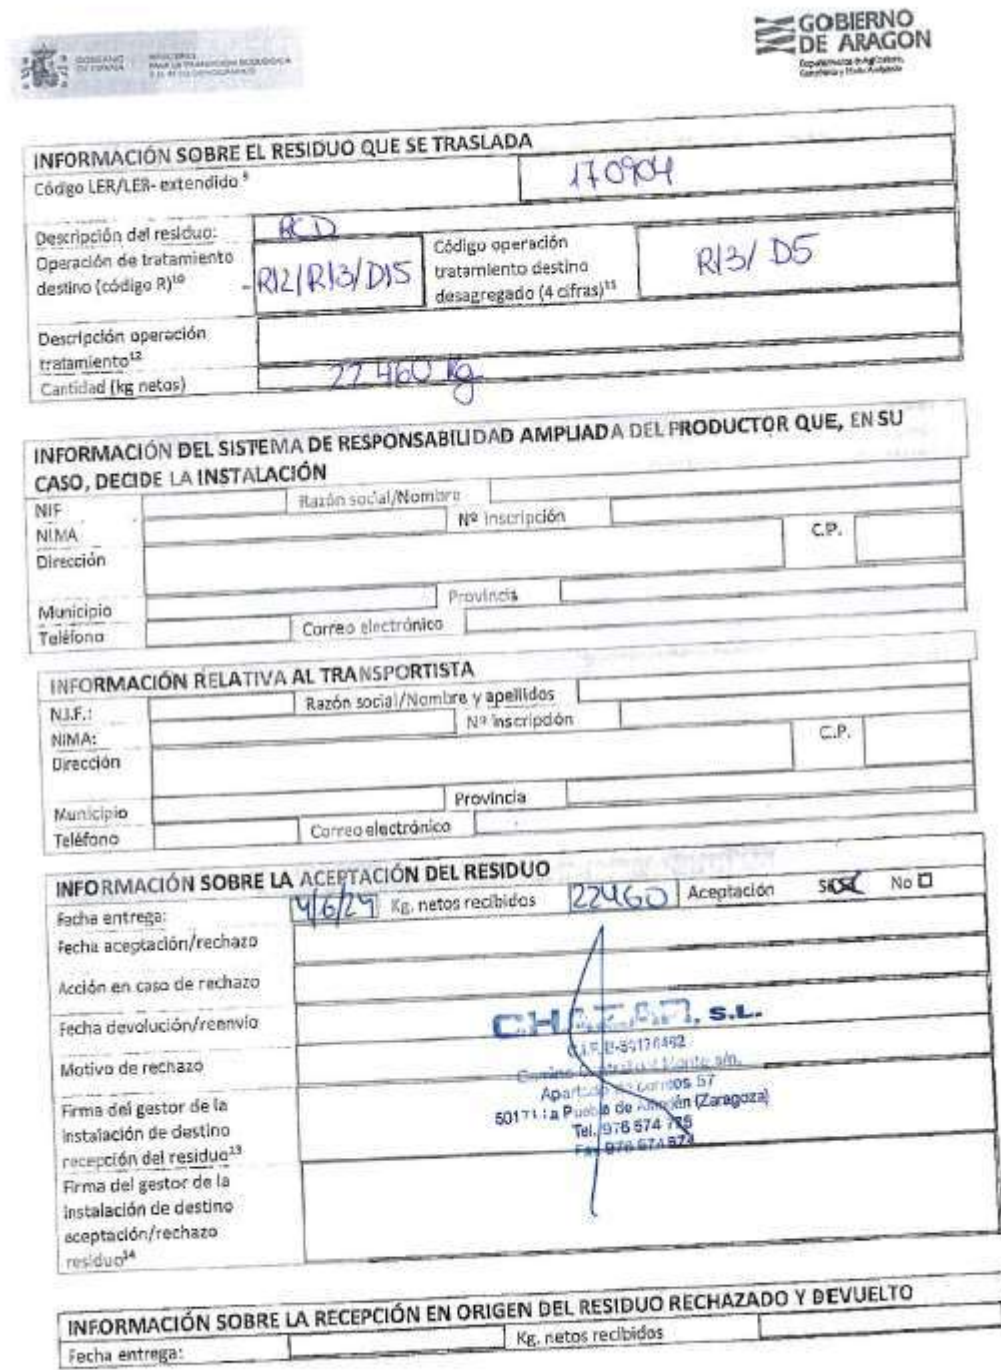 GOBIERNO
DE ESPAÑA
MINISTERIO
PARA LA TRANSICIÓN ECOLÓGICA
Y EL RETO DEMOGRÁFICO
GOBIERNO
DE ARAGON
Departamento de Agricultura,
Ganadería y Medio Ambiente
INFORMACIÓN SOBRE EL RESIDUO QUE SE TRASLADA
Código LER/LER- extendido 9 170904
Descripción del residuo: RCD
Operación de tratamiento destino (código R)10 R12/R13/D15 Código operación tratamiento destino desagregado (4 cifras)11 R13/ D5
Descripción operación
tratamiento12
Cantidad (kg netos) 22460 Kg
INFORMACIÓN DEL SISTEMA DE RESPONSABILIDAD AMPLIADA DEL PRODUCTOR QUE, EN SU
CASO, DECIDE LA INSTALACIÓN
NIF Razón social/Nombre
NIMA Nº inscripción
Dirección C.P.
Municipio Provincia
Teléfono Correo electrónico
INFORMACIÓN RELATIVA AL TRANSPORTISTA
N.I.F.: Razón social/Nombre y apellidos
NIMA: Nº inscripción
Dirección C.P.
Municipio Provincia
Teléfono Correo electrónico
INFORMACIÓN SOBRE LA ACEPTACIÓN DEL RESIDUO
Fecha entrega: 4/6/24 Kg. netos recibidos 22460 Aceptación Sí No
Fecha aceptación/rechazo
Acción en caso de rechazo
Fecha devolución/reenvío
Motivo de rechazo
Firma del gestor de la
instalación de destino
recepción del residuo13
Firma del gestor de la
instalación de destino
aceptación/rechazo
residuo14
, S.L.
C.I.F. 
Apartado de Correos 57
La Puebla de Alfindén (Zaragoza)
Tel. 976 574
Fax 976 574
INFORMACIÓN SOBRE LA RECEPCIÓN EN ORIGEN DEL RESIDUO RECHAZADO Y DEVUELTO
Fecha entrega: Kg. netos recibidos